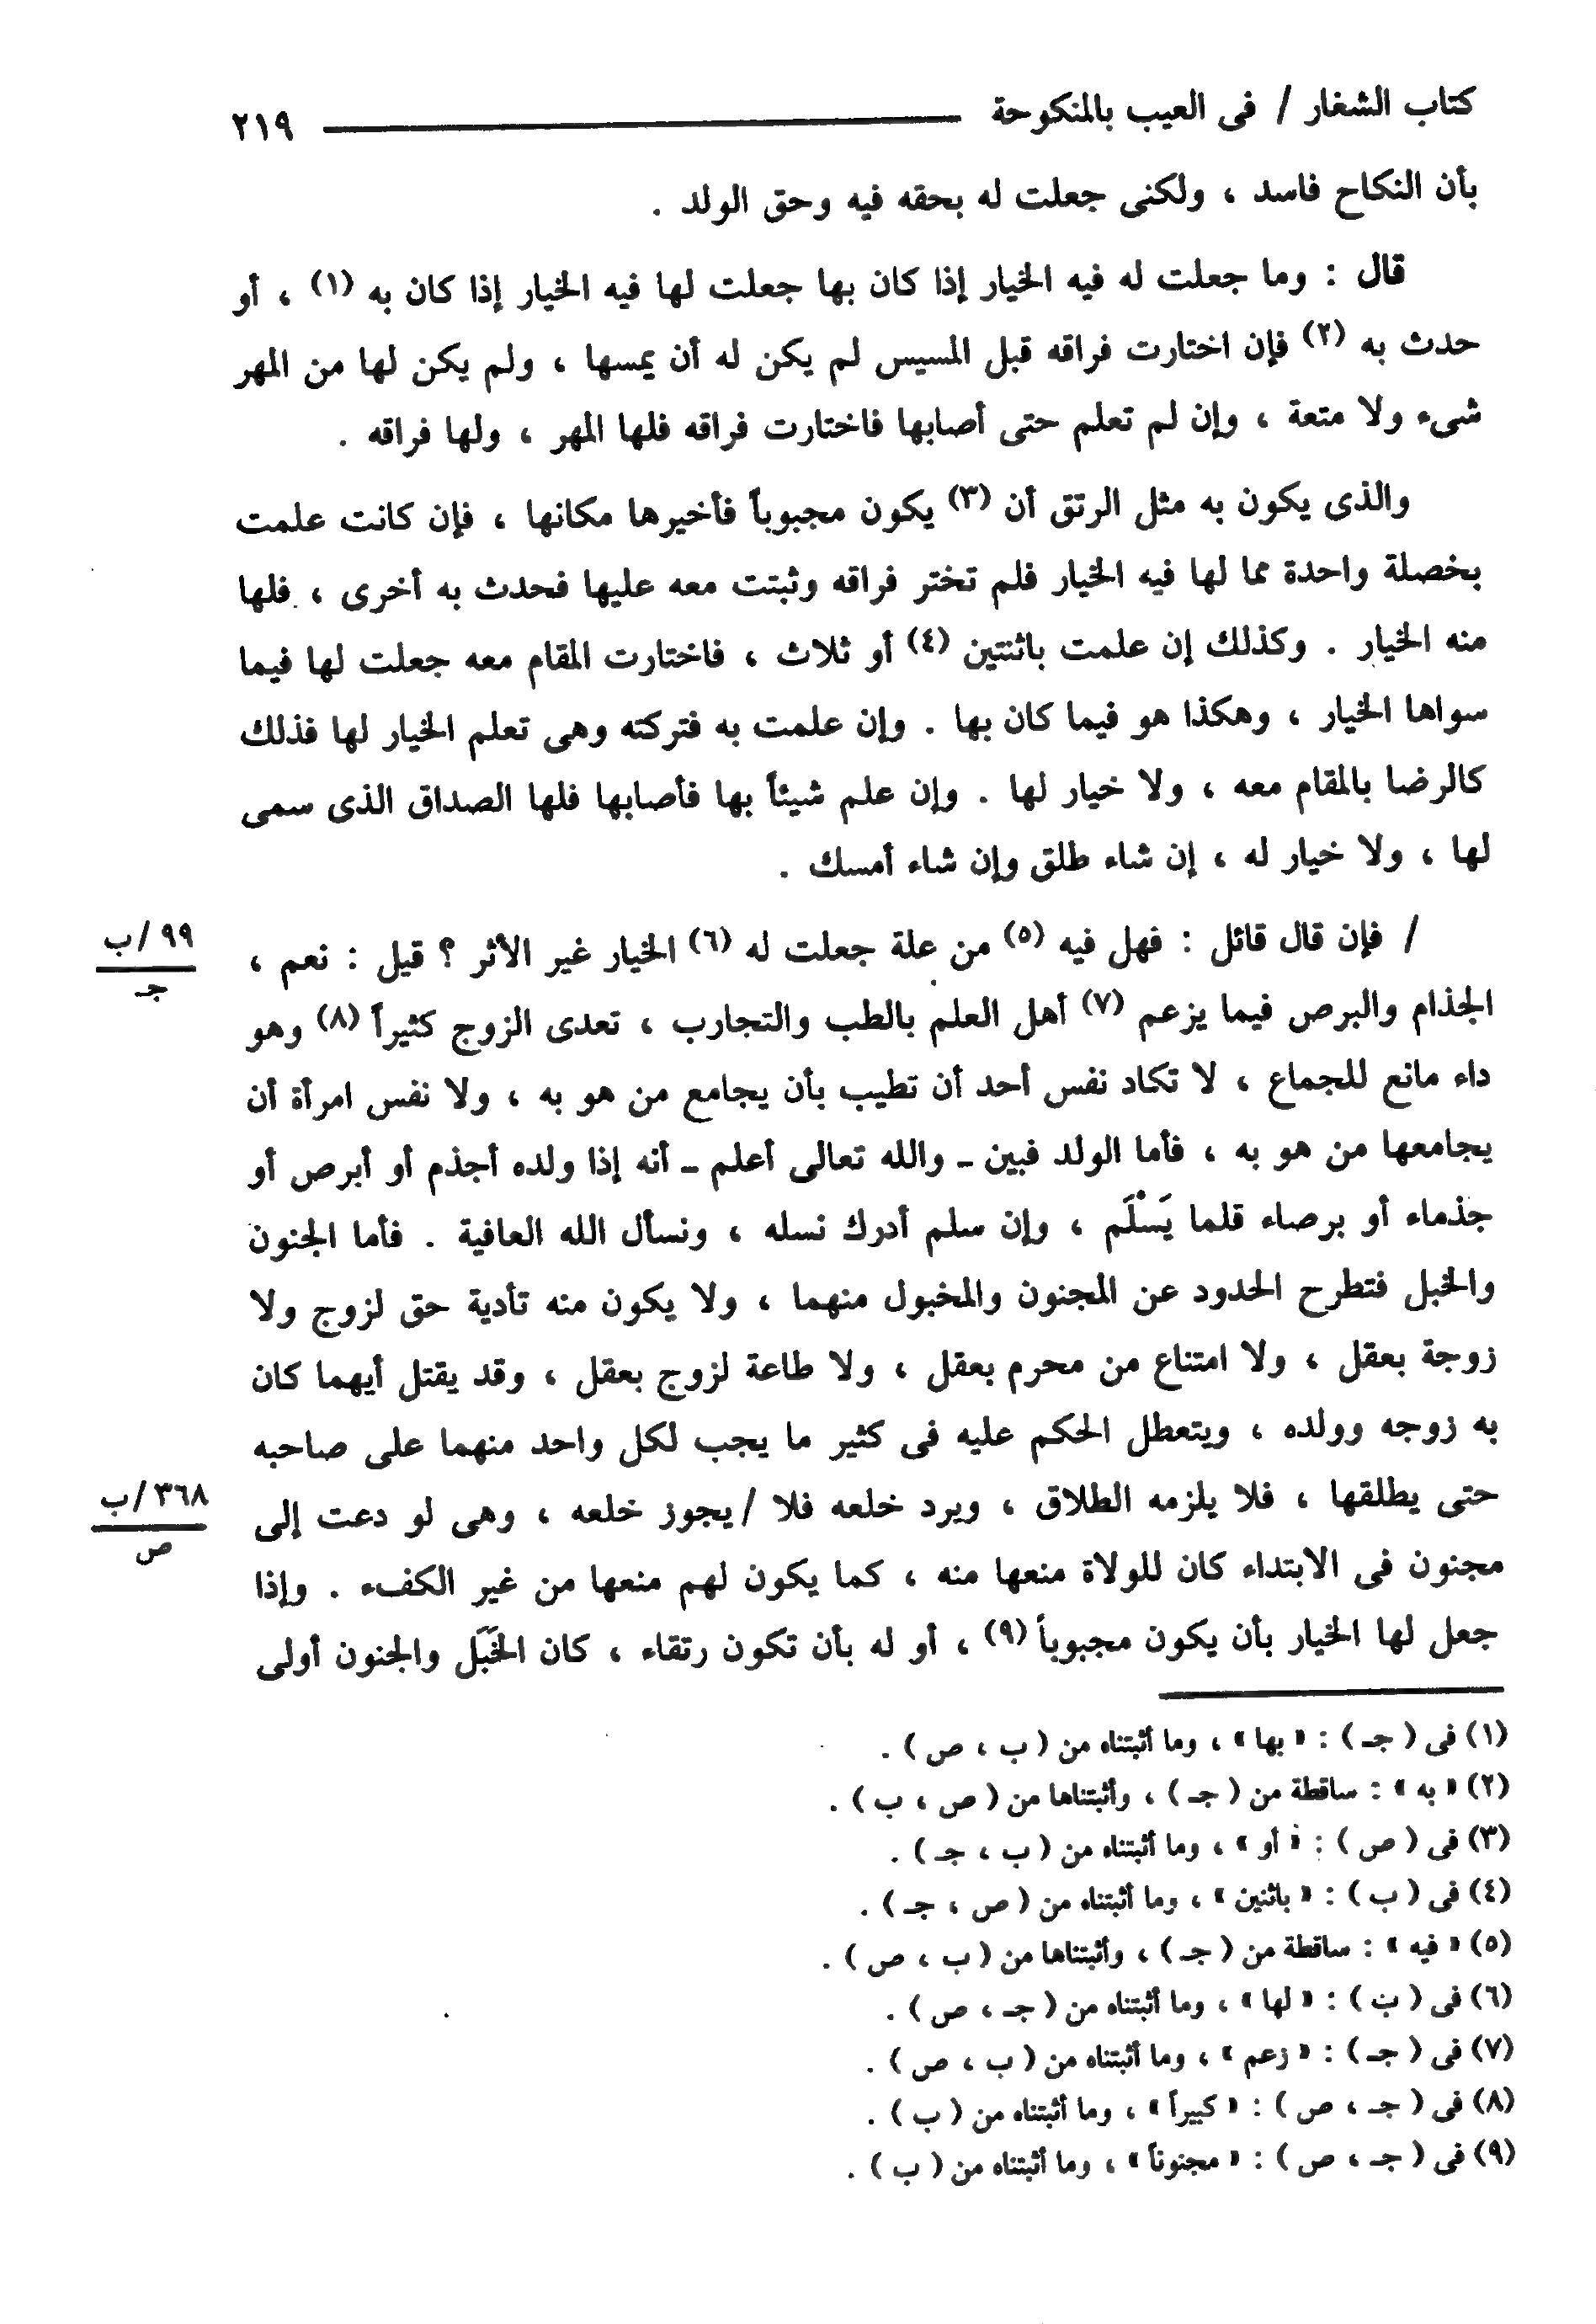 كتاب الشغار / فى العيب بالمنكوحة ــــــــــــــــ ٢١٩
بأن النكاح فاسد ، ولكنى جعلت له بحقه فيه وحق الولد .
قال : وما جعلت له فيه الخيار إذا كان بها جعلت لها فيه الخيار إذا كان به (١) ، أو
حدث به (٢) فإن اختارت فراقه قبل المسيس لم يكن له أن يمسها ، ولم يكن لها من المهر
شىء ولا متعة ، وإن لم تعلم حتى أصابها فاختارت فراقه فلها المهر ، ولها فراقه .
والذى يكون به مثل الرتق أن (٣) يكون مجبوباً فأخيرها مكانها ، فإن كانت علمت
بخصلة واحدة مما لها فيه الخيار فلم تختر فراقه وثبتت معه عليها فحدث به أخرى ، فلها
منه الخيار . وكذلك إن علمت باثنتين (٤) أو ثلاث ، فاختارت المقام معه جعلت لها فيما
سواها الخيار ، وهكذا هو فيما كان بها . وإن علمت به فتركته وهى تعلم الخيار لها فذلك
كالرضا بالمقام معه ، ولا خيار لها . وإن علم شيئاً بها فأصابها فلها الصداق الذى سمى
لها ، ولا خيار له ، إن شاء طلق وإن شاء أمسك .
/ فإن قال قائل : فهل فيه (٥) من علة جعلت له (٦) الخيار غير الأثر ؟ قيل : نعم ،
٩٩/ب
جـ
الجذام والبرص فيما يزعم (٧) أهل العلم بالطب والتجارب ، تعدى الزوج كثيراً (٨) وهو
داء مانع للجماع ، لا تكاد نفس أحد أن تطيب بأن يجامع من هو به ، ولا نفس امرأة أن
يجامعها من هو به ، فأما الولد فبين ـ والله تعالى أعلم ـ أنه إذا ولده أجذم أو أبرص أو
جذماء أو برصاء قلما يَسْلَم ، وإن سلم أدرك نسله ، ونسأل الله العافية . فأما الجنون
والخبل فتطرح الحدود عن المجنون والمخبول منهما ، ولا يكون منه تأدية حق لزوج ولا
زوجة بعقل ، ولا امتناع من محرم بعقل ، ولا طاعة لزوج بعقل ، وقد يقتل أيهما كان
به زوجه وولده ، ويتعطل الحكم عليه فى كثير ما يجب لكل واحد منهما على صاحبه
حتى يطلقها ، فلا يلزمه الطلاق ، ويرد خلعه فلا /يجوز خلعه ، وهى لو دعت إلى
٣٦٨/ب
ص
مجنون فى الابتداء كان للولاة منعها منه ، كما يكون لهم منعها من غير الكفء . وإذا
جعل لها الخيار بأن يكون مجبوباً (٩) ، أو له بأن تكون رتقاء ، كان الخَبَل والجنون أولى
(١) فى ( جـ ) : « بها » ، وما أثبتناه من ( ب ، ص ) .
(٢) « به » : ساقطة من ( جـ ) ، وأثبتناها من ( ص ، ب ) .
(٣) فى ( ص ) : « أو » ، وما أثبتناه من ( ب ، جـ ) .
(٤) فى ( ب ) : « باثنين » ، وما أثبتناه من ( ص ، جـ ) .
(٥) « فيه » : ساقطة من ( جـ ) ، وأثبتناها من ( ب ، ص ) .
(٦) فى ( ب ) : « لها » ، وما أثبتناه من ( جـ ، ص ) .
(٧) فى ( جـ ) : « زعم » ، وما أثبتناه من ( ب ، ص ) .
(٨) فى ( جـ ، ص ) : « كبيراً » ، وما أثبتناه من ( ب ) .
(٩) فى ( جـ ، ص ) : « مجنوناً » ، وما أثبتناه من ( ب ) .